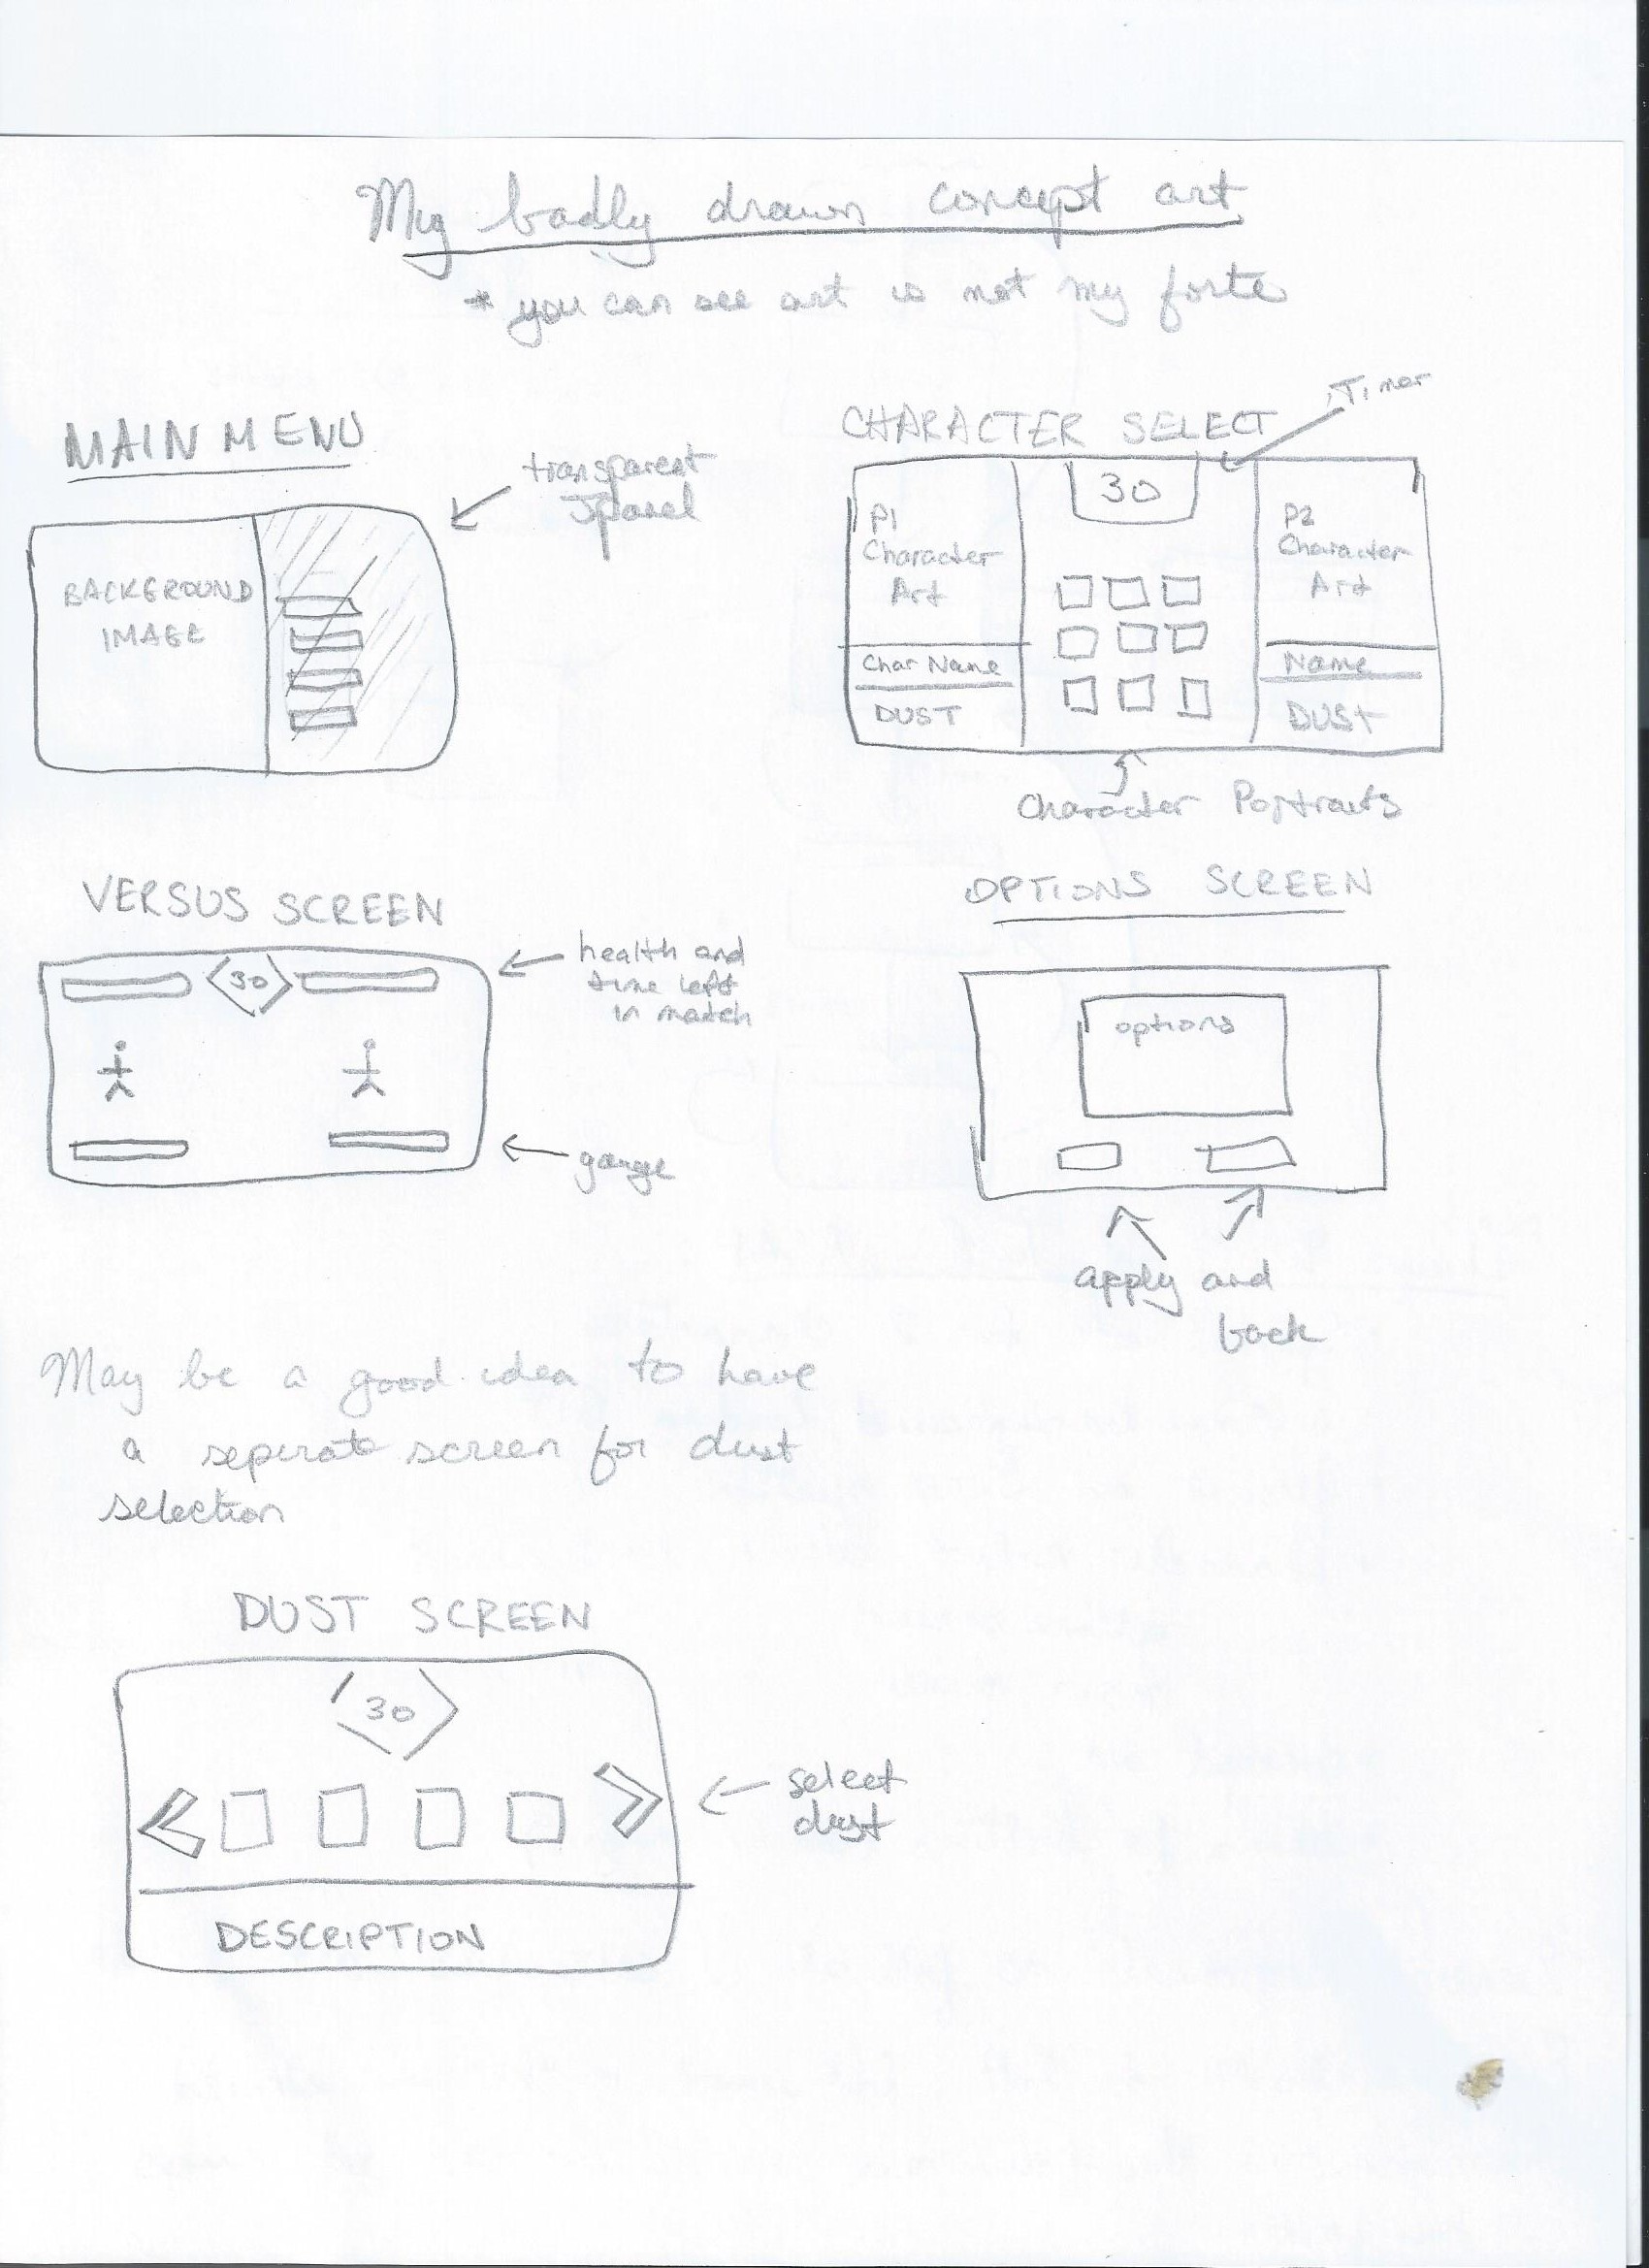 My badly drawn concept art
* you can see art is not my forte
MAIN MENU
transparent
Jpanel
BACKGROUND
IMAGE
CHARACTER SELECT
Timer
30
P1
Character
Art
Char Name
DUST
P2
Character
Art
Name
DUST
Character Portraits
VERSUS SCREEN
30
health and
time left
in match
gauge
OPTIONS SCREEN
options
apply and
back
May be a good idea to have
a seperate screen for dust
selection
DUST SCREEN
30
select
dust
DESCRIPTION